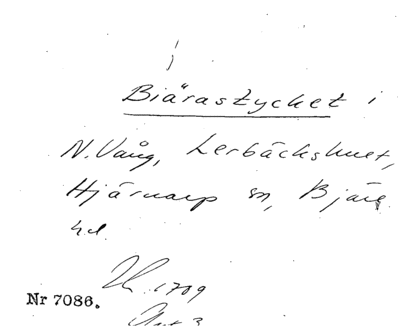 Biärastycket i
N. Vång, Lerbäckshult,
Hjärnarp sn, Bjäre
hd.
1709
Nr 7086.
Akt 3